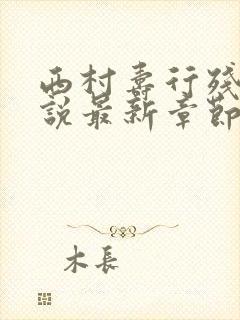 西村寿行残
説最新章節
木長